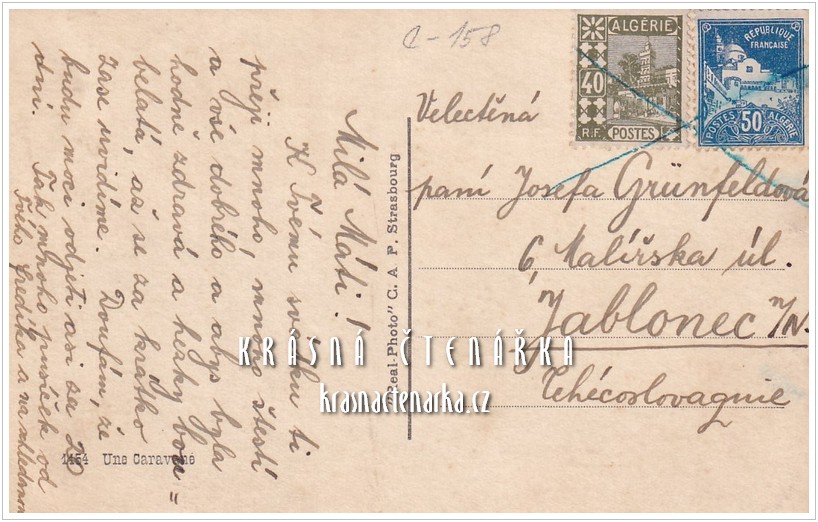 C-158
Milá Máti!
K Tvému svátku ti
přeji mnoho, mnoho štestí
a vše dobrého a abys byla
hodně zdravá a hezky bou=
belatá, až se za krátko
zase uvidíme. Doufám, že
budu moci odjeti asi za 20
dní. Tak mnoho pusíček od
Tvého Fredíka a na shledanou
"Real-Photo" C. A. P. Strasbourg
1454 Une Caravane
ALGÉRIE
40
R.F. POSTES
REPUBLIQUE
FRANÇAISE
POSTES 50 ALGERIE
Velectěná
paní Josefa Grünfeldová
6, Malířska úl.
Jablonec n/N.
Tchécoslovaquie
KRÁSNÁ ČTENÁŘKA
krasnactenarka.cz